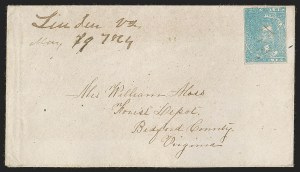 Linden Va
Mr William Moss
Forest Depot
Bedford County
Virginia